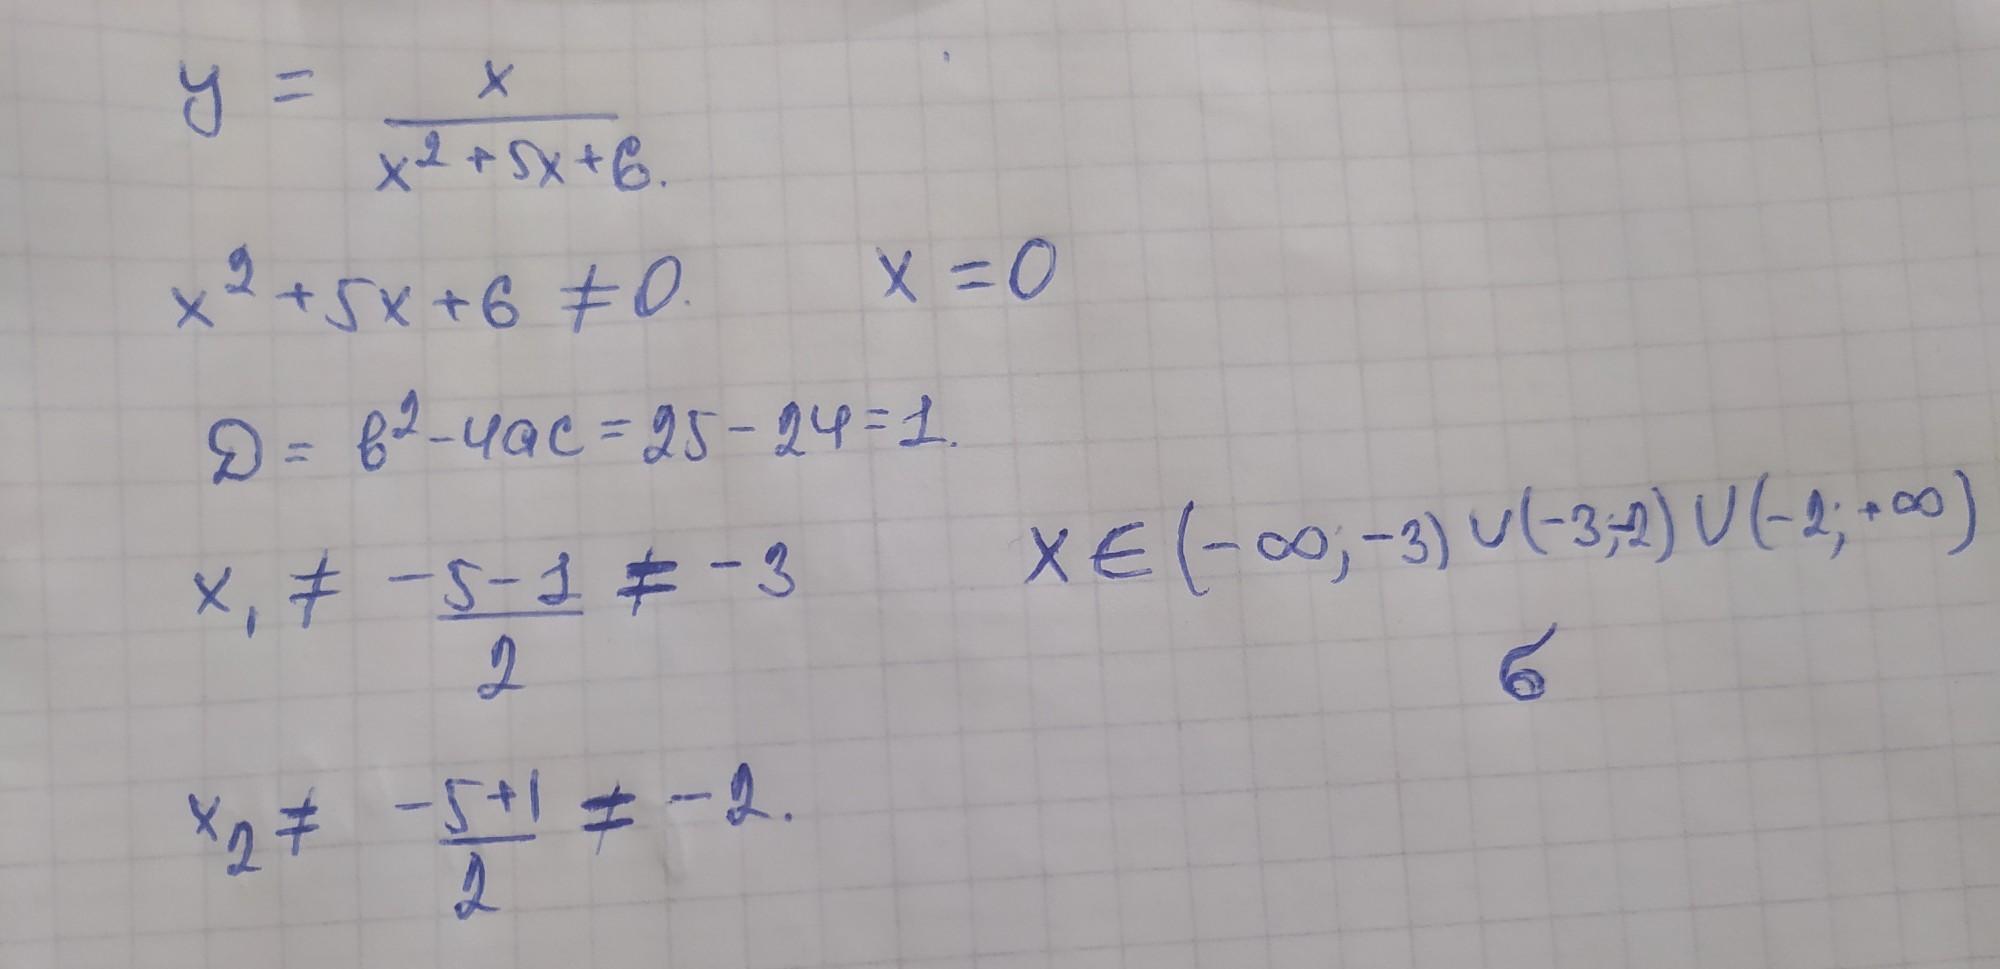 y = x / (x² + 5x + 6).
x² + 5x + 6 ≠ 0. x = 0
D = b² - 4ac = 25 - 24 = 1.
x₁ ≠ (-5-1)/2 ≠ -3
x ∈ (-∞; -3) ∪ (-3; -2) ∪ (-2; +∞)
б
x₂ ≠ (-5+1)/2 ≠ -2.